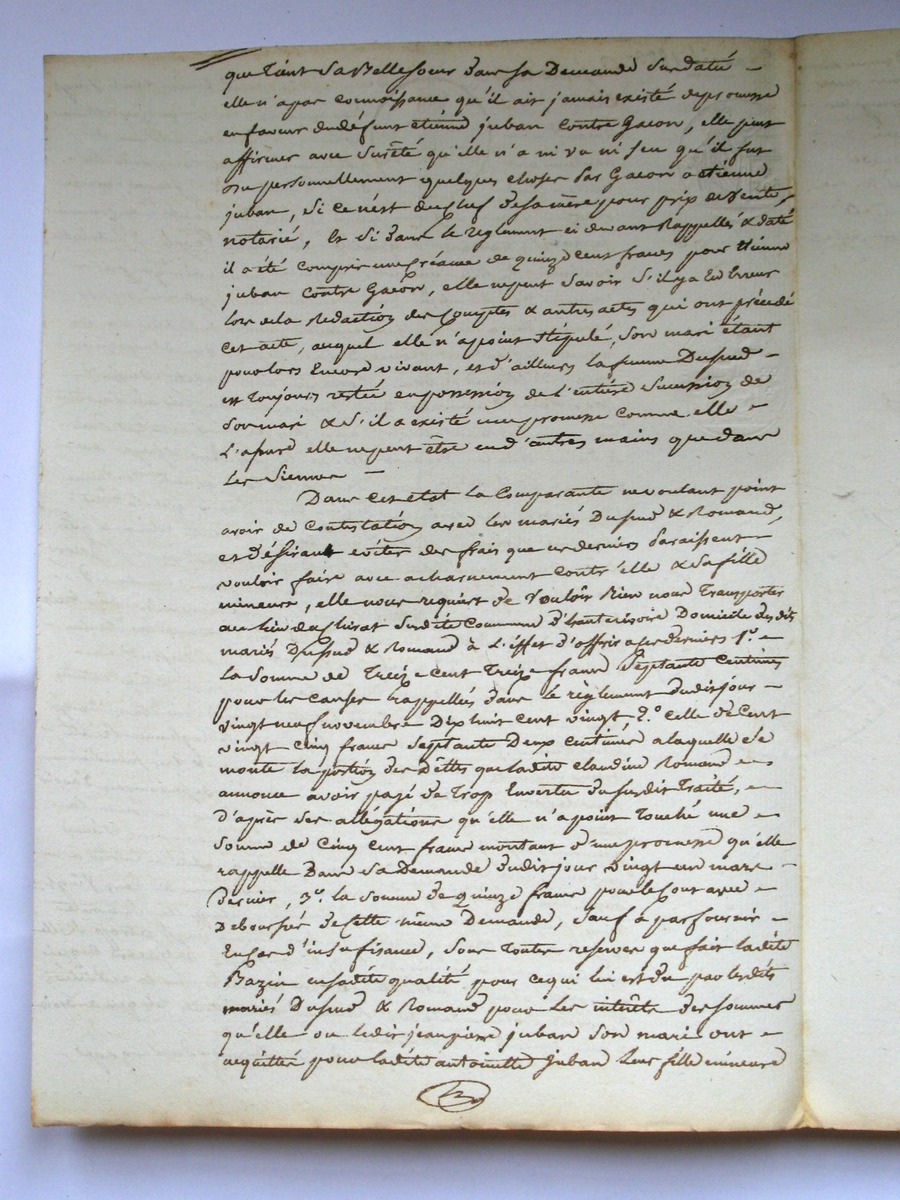 que tient sa Belle soeur dans sa Demande susdaté —
elle n'a pas connoissance qu'il ait jamais existé de promesse
en faveur du défunt etienne juban contre Gacon, elle peut
affirmer avec sureté qu'elle n'a ni vu ni seu qu'il fut
du personnellement quelques choses par Gacon a etienne
juban, si ce n'est du chef de sa mère pour prix de vente,
notarié, Et si dans le reglement ci devant Rappellés & daté
il a été compris une créance de quinze cent francs pour etienne
juban contre Gacon, elle ne peut savoir s'il y a Eu Erreur
lors de la redaction des comptes & autres actes qui ont précédé
cet acte, auquel elle n'a point stipulé, son mari étant
pour lors Encore vivant, et d'ailleurs la femme Dusud —
est toujours restée en possession de l'entière succession de
son mari & s'il a existé une promesse comme elle —
l'assure elle ne peut être en d'autres mains que dans
les siennes —
Dans cet état la comparante ne voulant point
avoir de contestation avec les mariés Dusud & Romand,
et désirant eviter des frais que ces derniers paraissent —
vouloir faire avec acharnement contr'elle & sa fille
mineure, elle nous requiert de vouloir bien nous transporter
au lieu du susdite commune d'hauterivoire Domicile desdits
mariés Dusud & Romand à l'effet d'offrir a ces derniers 1.° —
la somme de treize cent treize francs septante centimes
pour les causes rappellés dans le règlement dudit jour —
vingt neuf novembre dix huit cent vingt 2.° celle de cent
vingt cinq francs septante deux centimes a laquelle se
monte la portion des dettes que ladite claudine Romand —
annonce avoir payé de trop Envertu du susdit traité, —
d'après ses allégations qu'elle n'a point touché une —
somme de cinq cent francs montant d'une promesse qu'elle
rappelle Dans sa Demande dudit jour vingt un mars —
dernier, 3.° la somme de quinze francs pour le cout avec —
Deboursés de cette même Demande, sauf à parfournir —
En cas d'insufisance, sous toutes reserves que fait ladite
Bazin en sadite qualité pour ce qui lui est du par lesdits
mariés Dusud & Romand pour les intérêts des sommes
qu'elle ou ledit jeanpierre juban son mari ont —
acquittés pour ladite antoinette juban leur fille mineure